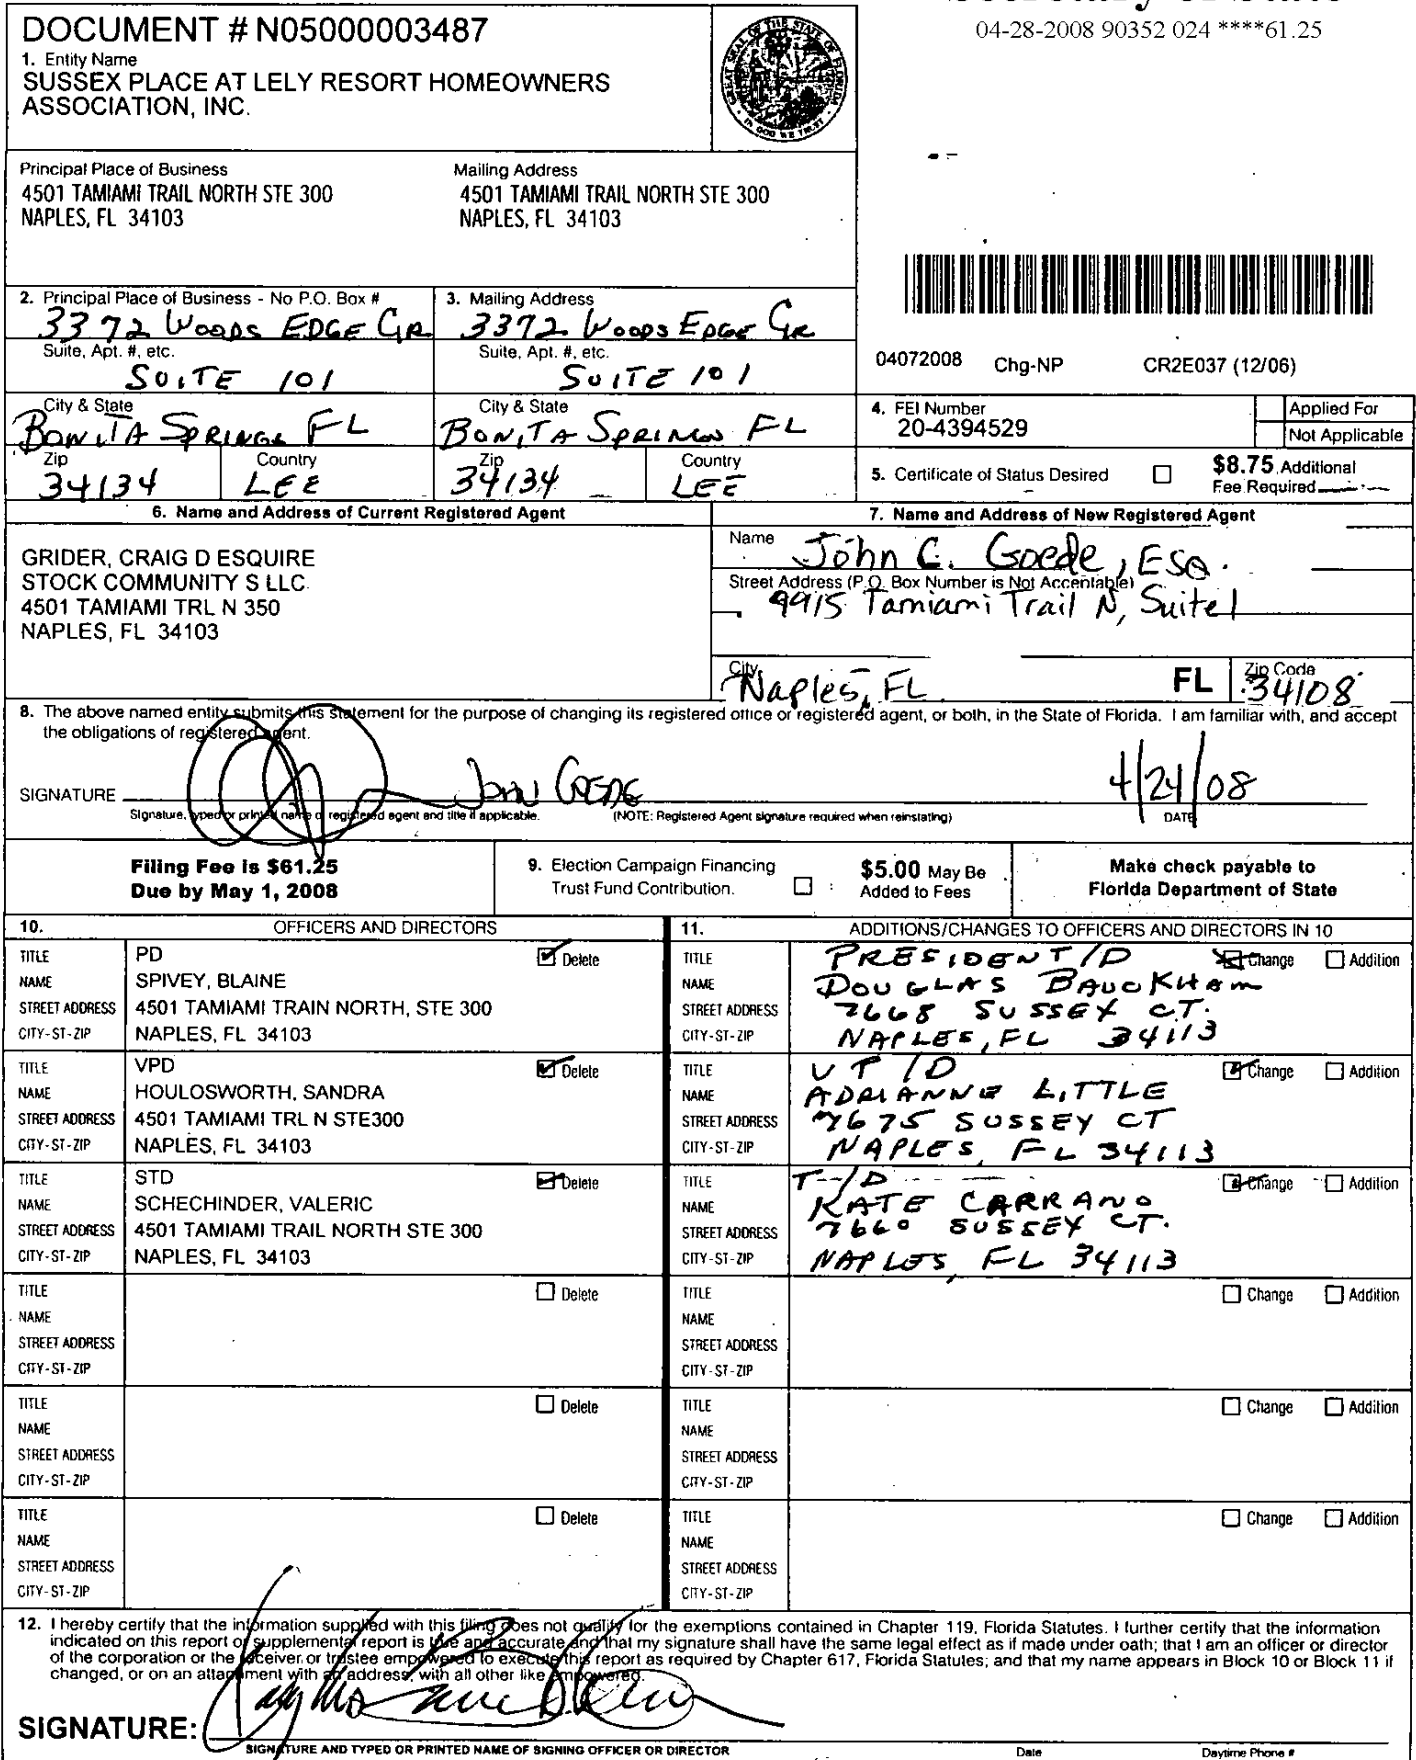 04-28-2008 90352 024 ****61.25
DOCUMENT # N05000003487
1. Entity Name
SUSSEX PLACE AT LELY RESORT HOMEOWNERS
ASSOCIATION, INC.
GREAT SEAL OF THE STATE OF FLORIDA
IN GOD WE TRUST
Principal Place of Business
4501 TAMIAMI TRAIL NORTH STE 300
NAPLES, FL 34103
Mailing Address
4501 TAMIAMI TRAIL NORTH STE 300
NAPLES, FL 34103
2. Principal Place of Business - No P.O. Box #
3372 WOODS EDGE CIR
Suite, Apt. #, etc.
SUITE 101
City & State
BONITA SPRINGS FL
Zip
34134
Country
LEE
3. Mailing Address
3372 WOODS EDGE CIR
Suite, Apt. #, etc.
SUITE 101
City & State
BONITA SPRINGS FL
Zip
34134
Country
LEE
04072008 Chg-NP CR2E037 (12/06)
4. FEI Number
20-4394529
Applied For
Not Applicable
5. Certificate of Status Desired
$8.75 Additional
Fee Required
6. Name and Address of Current Registered Agent
GRIDER, CRAIG D ESQUIRE
STOCK COMMUNITY S LLC
4501 TAMIAMI TRL N 350
NAPLES, FL 34103
7. Name and Address of New Registered Agent
Name John C. Goede, ESQ.
Street Address (P.O. Box Number is Not Acceptable)
9915 Tamiami Trail N, Suite 1
City
Naples, FL
FL
Zip Code
34108
8. The above named entity submits this statement for the purpose of changing its registered office or registered agent, or both, in the State of Florida. I am familiar with, and accept
the obligations of registered agent.
SIGNATURE
JOHN GOEDE
4/24/08
Signature, typed or printed name of registered agent and title if applicable.
(NOTE: Registered Agent signature required when reinstating)
DATE
Filing Fee is $61.25
Due by May 1, 2008
9. Election Campaign Financing
Trust Fund Contribution.
$5.00 May Be
Added to Fees
Make check payable to
Florida Department of State
10. OFFICERS AND DIRECTORS
TITLE PD Delete
NAME SPIVEY, BLAINE
STREET ADDRESS 4501 TAMIAMI TRAIN NORTH, STE 300
CITY-ST-ZIP NAPLES, FL 34103
TITLE VPD Delete
NAME HOULOSWORTH, SANDRA
STREET ADDRESS 4501 TAMIAMI TRL N STE300
CITY-ST-ZIP NAPLES, FL 34103
TITLE STD Delete
NAME SCHECHINDER, VALERIC
STREET ADDRESS 4501 TAMIAMI TRAIL NORTH STE 300
CITY-ST-ZIP NAPLES, FL 34103
TITLE Delete
NAME
STREET ADDRESS
CITY-ST-ZIP
TITLE Delete
NAME
STREET ADDRESS
CITY-ST-ZIP
TITLE Delete
NAME
STREET ADDRESS
CITY-ST-ZIP
11. ADDITIONS/CHANGES TO OFFICERS AND DIRECTORS IN 10
TITLE PRESIDENT/D Change Addition
NAME DOUGLAS BAUCKHAM
STREET ADDRESS 7668 SUSSEX CT.
CITY-ST-ZIP NAPLES, FL 34113
TITLE VP/D Change Addition
NAME ADRIANNE LITTLE
STREET ADDRESS 7675 SUSSEY CT
CITY-ST-ZIP NAPLES, FL 34113
TITLE T/D Change Addition
NAME KATE CARRANO
STREET ADDRESS 7660 SUSSEY CT.
CITY-ST-ZIP NAPLES, FL 34113
TITLE Change Addition
NAME
STREET ADDRESS
CITY-ST-ZIP
TITLE Change Addition
NAME
STREET ADDRESS
CITY-ST-ZIP
TITLE Change Addition
NAME
STREET ADDRESS
CITY-ST-ZIP
12. I hereby certify that the information supplied with this filing does not qualify for the exemptions contained in Chapter 119, Florida Statutes. I further certify that the information
indicated on this report or supplemental report is true and accurate and that my signature shall have the same legal effect as if made under oath; that I am an officer or director
of the corporation or the receiver or trustee empowered to execute this report as required by Chapter 617, Florida Statutes; and that my name appears in Block 10 or Block 11 if
changed, or on an attachment with an address, with all other like empowered.
SIGNATURE:
SIGNATURE AND TYPED OR PRINTED NAME OF SIGNING OFFICER OR DIRECTOR
Date
Daytime Phone #